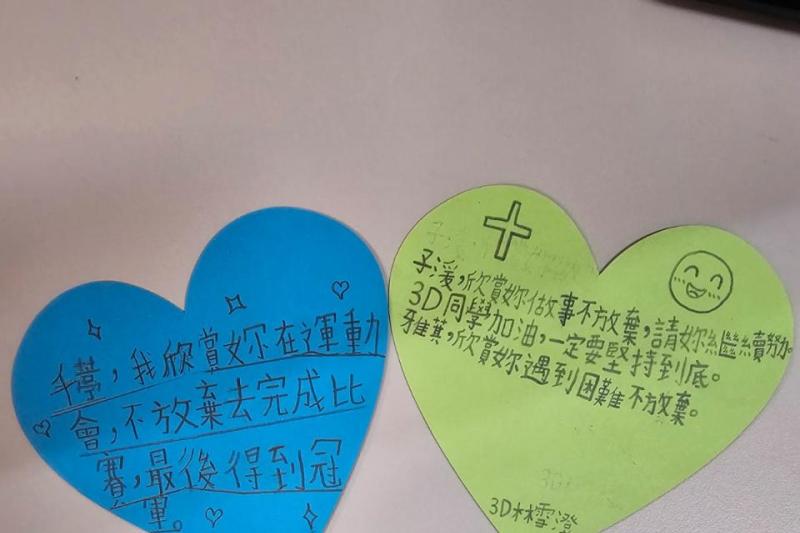 我欣賞妳在運動
會，不放棄去完成比
賽，最後得到冠
軍。
子湲，欣賞妳做事不放棄，請妳繼續努力。
3D同學加油，一定要堅持到底。
雅萁，欣賞妳遇到困難不放棄。
3D林雪澄